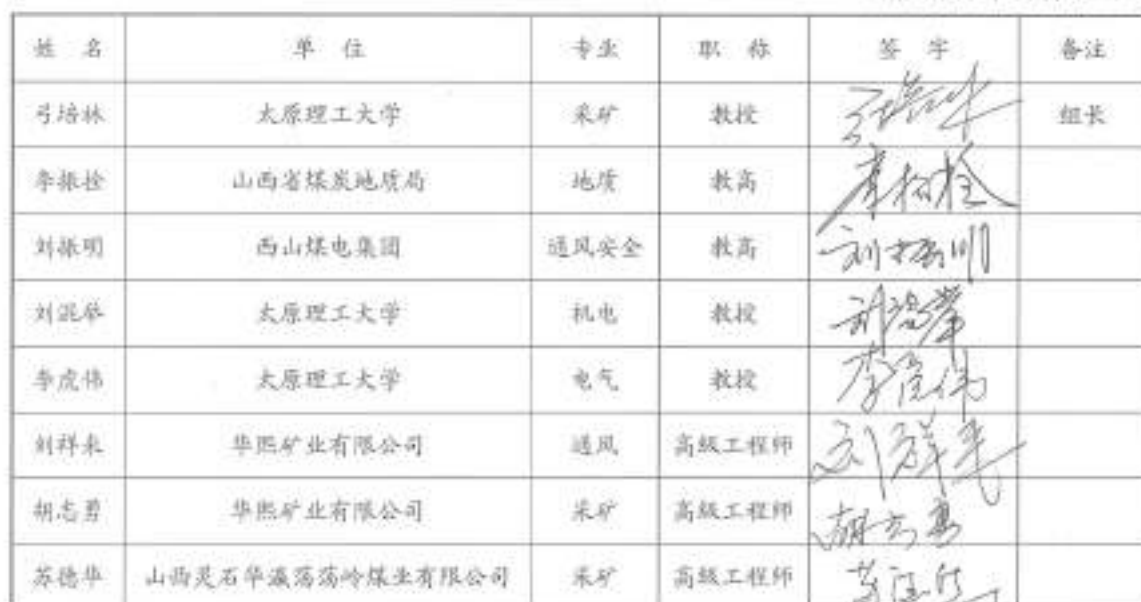 姓 名 单 位 专业 职 称 签 字 备注
弓培林 太原理工大学 采矿 教授 弓培林 组长
李振拴 山西省煤炭地质局 地质 教高 李振拴
刘振明 西山煤电集团 通风安全 教高 刘振明
刘混举 太原理工大学 机电 教授 刘混举
李虎伟 太原理工大学 电气 教授 李虎伟
刘祥来 华熙矿业有限公司 通风 高级工程师 刘祥来
胡志勇 华熙矿业有限公司 采矿 高级工程师 胡志勇
苏德华 山西灵石华瀛荡荡岭煤业有限公司 采矿 高级工程师 苏德华